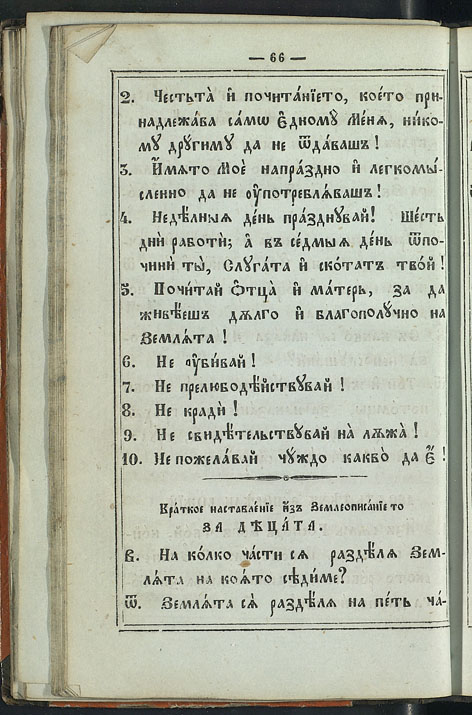 — 66 —
2. Честьта̀ и҆ почита́нїето, кое́то при-
надлежа́ва са́мѡ Е҆дному Ме́ня, ни́ко-
му дру́гиму да не ѿда́вашъ!
3. И҆́мято Моѐ напра́здно и҆ легкомы́-
сленно да не ᲂу҆потребля́вашъ!
4. Недѣ́лныя де́нь пра́зднувай! Ше́сть
дни̑ работѝ; а҆ въ се́дмыя де́нь ѿпо-
чини́ ты̀, Слуга́та и҆ ско́татъ тво́й!
5. Почи́тай Ѻ҆тца̀ и҆ ма́терь, за да
живѣ́ешъ дѫ́лго и҆ благополу́чно на
Земля́та!
6. Не ᲂу҆би́вай!
7. Не прелюбодѣ́йствувай!
8. Не крадѝ!
9. Не свидѣ́телствувай на̀ лѫжа̀!
10. Не пожела́вай чу́ждо какво̀ да є҆̀!
Кра́ткое наставле́нїе и҆зъ Землеѡписа́нїето
ЗА ДѢЦА́ТА.
В. На ко́лко ча́сти ся раздѣ́ля Зем-
ля́та на коя́то сѣди́ме?
Ѿ. Земля́та ся̀ раздѣ́ля на пе́ть ча́-